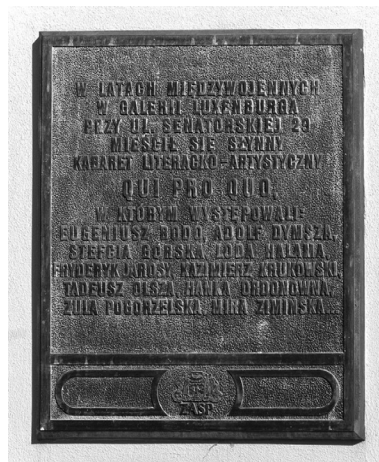 W LATACH MIĘDZYWOJENNYCH
W GALERII LUXENBURGA
PRZY UL. SENATORSKIEJ 29
MIEŚCIŁ SIĘ SŁYNNY
KABARET LITERACKO-ARTYSTYCZNY
QUI PRO QUO,
W KTÓRYM WYSTĘPOWALI:
EUGENIUSZ BODO, ADOLF DYMSZA,
STEFCIA GÓRSKA, LODA HALAMA,
FRYDERYK JAROSY, KAZIMIERZ KRUKOWSKI,
TADEUSZ OLSZA, HANKA ORDONÓWNA,
ZULA POGORZELSKA, MIRA ZIMIŃSKA...
ZASP